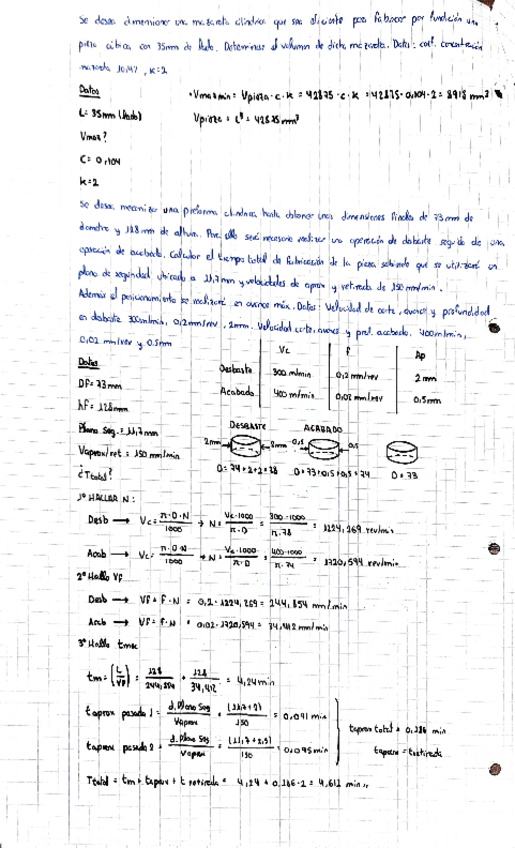 Se desea dimensionar una mazarota cilíndrica que sea eficiente para fabricar por fundición una
pieza cúbica con 35mm de lado. Determinese el volumen de dicha mazarota. Datos: coef. contracción
k=2
Datos
L= 35mm (lado)
Vmaz?
C= 0,104
k=2
• Vmaz min = Vpieza · c · k = 42875 · c · k = 42875 · 0,104 · 2 = 8918 mm³
Vpieza = L³ = 42875 mm³
Se desea mecanizar una preforma cilíndrica hasta obtener unas dimensiones finales de 73 mm de
diametro y 128 mm de altura. Para ello será necesario realizar una operación de desbaste seguido de una
operación de acabado. Calcular el tiempo total de fabricación de la pieza sabiendo que se utilizará un
plano de seguridad ubicado a 11,7 mm y velocidades de aprox y retirada de 150 mm/min.
Además el posicionamiento se realizará en avance máx. Datos: Velocidad de corte, avance y profundidad
en desbaste 300m/min, 0,2mm/rev, 2mm. Velocidad corte, avance y prof. acabado. 400m/min,
0,02 mm/rev y 0.5mm
Datos
DF= 73mm
hF= 128mm
Plano Seg.= 11,7 mm
Vaprox/ret = 150 mm/min
¿Ttotal?
Vc f Ap
Desbaste 300 m/min 0,2 mm/rev 2 mm
Acabado 400 m/min 0,02 mm/rev 0,5mm
DESBASTE ACABADO
2mm 2mm 0,5 0,5
D= 74+2+2=78 D=73+0,5+0,5=74 D=73
1º HALLAR N:
Desb → Vc= π·D·N / 1000 → N= Vc·1000 / π·D = 300·1000 / π·78 = 1224,269 rev/min
Acab → Vc= π·D·N / 1000 → N= Vc·1000 / π·D = 400·1000 / π·74 = 1720,594 rev/min
2º Hallo VF
Desb → VF= f·N = 0,2·1224,269= 244,854 mm/min
Acab → VF= f·N = 0.02·1720,594= 34,412 mm/min
3º Hallo tmec
tm= (L / VF) = 128 / 244,854 + 128 / 34,412 = 4,24min
taprox pasada 1 = d.Plano Seg / Vaprox = (11,7+2) / 150 = 0,091 min
taprox pasada 2 = d.Plano Seg / Vaprox = (11,7+2,5) / 150 = 0,095 min
taprox total = 0,186 min
taprox = tretirada
Ttotal = tm + taprox + t retirada = 4,24 + 0,186·2 = 4,612 min